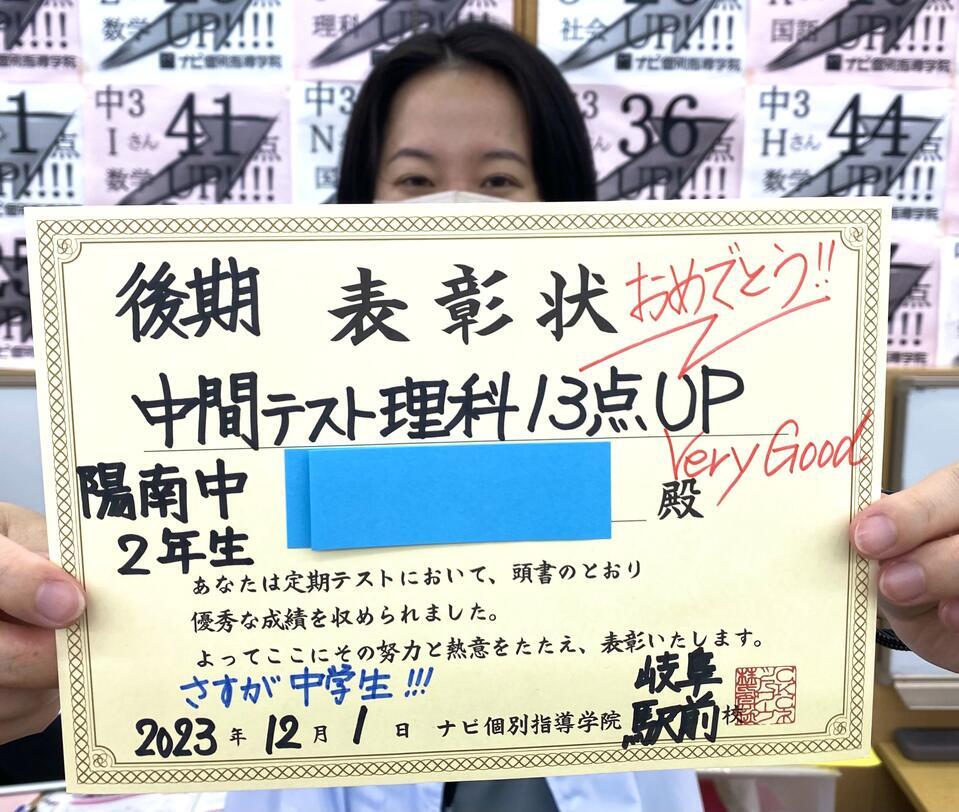 数学 UP!!!!
理科 UP!!!!
社会 UP!!!!
国語 UP!!!!
ナビ個別指導学院
ナビ個別指導学院
中3
Iさん 41点
数学 UP!!!!
中3
N
国
36点
UP!!!!
中3
Hさん 44点
数学 UP!!!!
後期 表彰状 おめでとう!!
中間テスト理科13点UP
Very Good
陽南中
2年生
殿
あなたは定期テストにおいて、頭書のとおり
優秀な成績を収められました。
よってここにその努力と熱意をたたえ、表彰いたします。
さすが中学生!!!
2023年12月1日 ナビ個別指導学院 岐阜駅前校